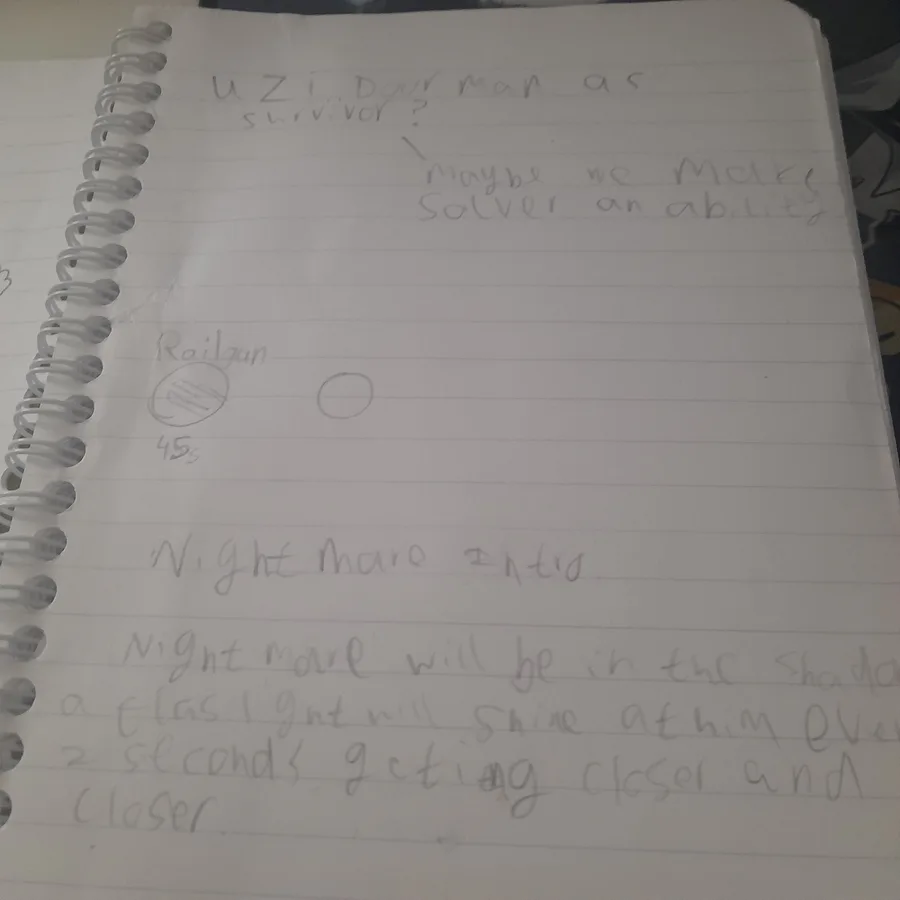 Uzi Dorman as
survivor?
maybe we Make
solver an ability
Railgun
45s
Nightmare Intro
Nightmare will be in the
a flaslight will shine at him
2 seconds geting closer and
closer